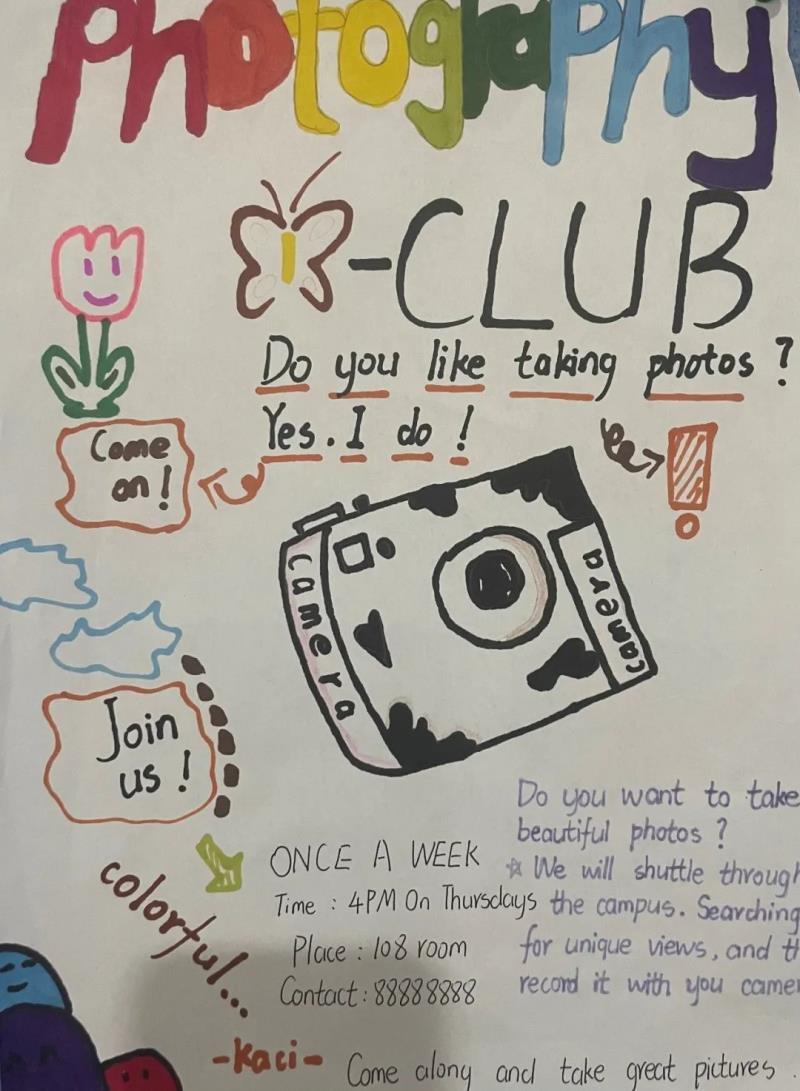 Photography
-CLUB
Do you like taking photos ?
Yes. I do !
Come
on !
camera
camera
Join
us !
Do you want to take
beautiful photos ?
☆ We will shuttle through
the campus. Searching
for unique views, and th
record it with you camer
colorful...
ONCE A WEEK
Time : 4PM On Thursdays
Place : 108 room
Contact : 88888888
-Kaci-
Come along and take great pictures.